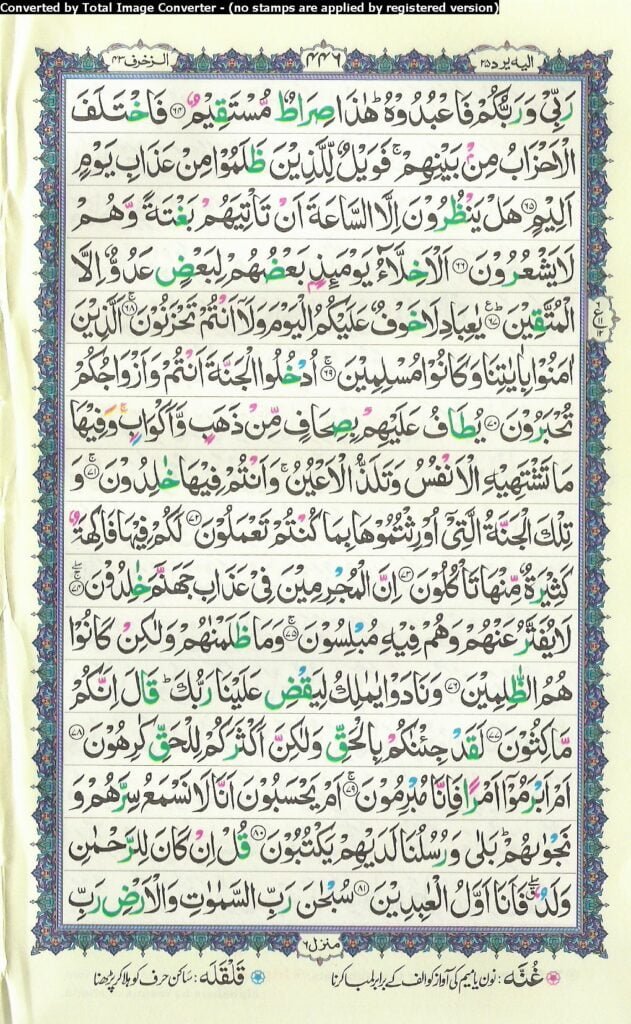 Converted by Total Image Converter - (no stamps are applied by registered version)
الیه یرد ۲۵
۴۴۶
الزخرف ۴۳
رَبِّیْ وَ رَبُّكُمْ فَاعْبُدُوْهُ ؕ هٰذَا صِرَاطٌ مُّسْتَقِیْمٌ ۶۴ فَاخْتَلَفَ
الْاَحْزَابُ مِنْۢ بَیْنِهِمْ ۚ فَوَیْلٌ لِّلَّذِیْنَ ظَلَمُوْا مِنْ عَذَابِ یَوْمٍ
اَلِیْمٍ ۶۵ هَلْ یَنْظُرُوْنَ اِلَّا السَّاعَةَ اَنْ تَاْتِیَهُمْ بَغْتَةً وَّ هُمْ
لَا یَشْعُرُوْنَ ۶۶ اَلْاَخِلَّآءُ یَوْمَىِٕذٍۭ بَعْضُهُمْ لِبَعْضٍ عَدُوٌّ اِلَّا
الْمُتَّقِیْنَ ؕ ۶۷ یٰعِبَادِ لَا خَوْفٌ عَلَیْكُمُ الْیَوْمَ وَ لَاۤ اَنْتُمْ تَحْزَنُوْنَ ۚ ۶۸ اَلَّذِیْنَ
اٰمَنُوْا بِاٰیٰتِنَا وَ كَانُوْا مُسْلِمِیْنَ ۚ ۶۹ اُدْخُلُوا الْجَنَّةَ اَنْتُمْ وَ اَزْوَاجُكُمْ
تُحْبَرُوْنَ ۷۰ یُطَافُ عَلَیْهِمْ بِصِحَافٍ مِّنْ ذَهَبٍ وَّ اَكْوَابٍ ۚ وَ فِیْهَا
مَا تَشْتَهِیْهِ الْاَنْفُسُ وَ تَلَذُّ الْاَعْیُنُ ۚ وَ اَنْتُمْ فِیْهَا خٰلِدُوْنَ ۚ ۷۱ وَ
تِلْكَ الْجَنَّةُ الَّتِیْۤ اُوْرِثْتُمُوْهَا بِمَا كُنْتُمْ تَعْمَلُوْنَ ۷۲ لَكُمْ فِیْهَا فَاكِهَةٌ
كَثِیْرَةٌ مِّنْهَا تَاْكُلُوْنَ ۷۳ اِنَّ الْمُجْرِمِیْنَ فِیْ عَذَابِ جَهَنَّمَ خٰلِدُوْنَ ۚ ۷۴
لَا یُفَتَّرُ عَنْهُمْ وَ هُمْ فِیْهِ مُبْلِسُوْنَ ۚ ۷۵ وَ مَا ظَلَمْنٰهُمْ وَ لٰكِنْ كَانُوْا
هُمُ الظّٰلِمِیْنَ ۷۶ وَ نَادَوْا یٰمٰلِكُ لِیَقْضِ عَلَیْنَا رَبُّكَ ؕ قَالَ اِنَّكُمْ
مّٰكِثُوْنَ ۷۷ لَقَدْ جِئْنٰكُمْ بِالْحَقِّ وَ لٰكِنَّ اَكْثَرَكُمْ لِلْحَقِّ كٰرِهُوْنَ ۷۸
اَمْ اَبْرَمُوْۤا اَمْرًا فَاِنَّا مُبْرِمُوْنَ ۚ ۷۹ اَمْ یَحْسَبُوْنَ اَنَّا لَا نَسْمَعُ سِرَّهُمْ وَ
نَجْوٰىهُمْ ؕ بَلٰى وَ رُسُلُنَا لَدَیْهِمْ یَكْتُبُوْنَ ۸۰ قُلْ اِنْ كَانَ لِلرَّحْمٰنِ
وَلَدٌ ۖ فَاَنَا اَوَّلُ الْعٰبِدِیْنَ ۸۱ سُبْحٰنَ رَبِّ السَّمٰوٰتِ وَ الْاَرْضِ رَبِّ
ع
۱۱
۱۲
منزل ۶
غُنَّه : نون یا میم کی آواز کو الف کے برابر لمبا کرنا
قَلْقَلَه : ساکن حرف کو ہلا کر پڑھنا